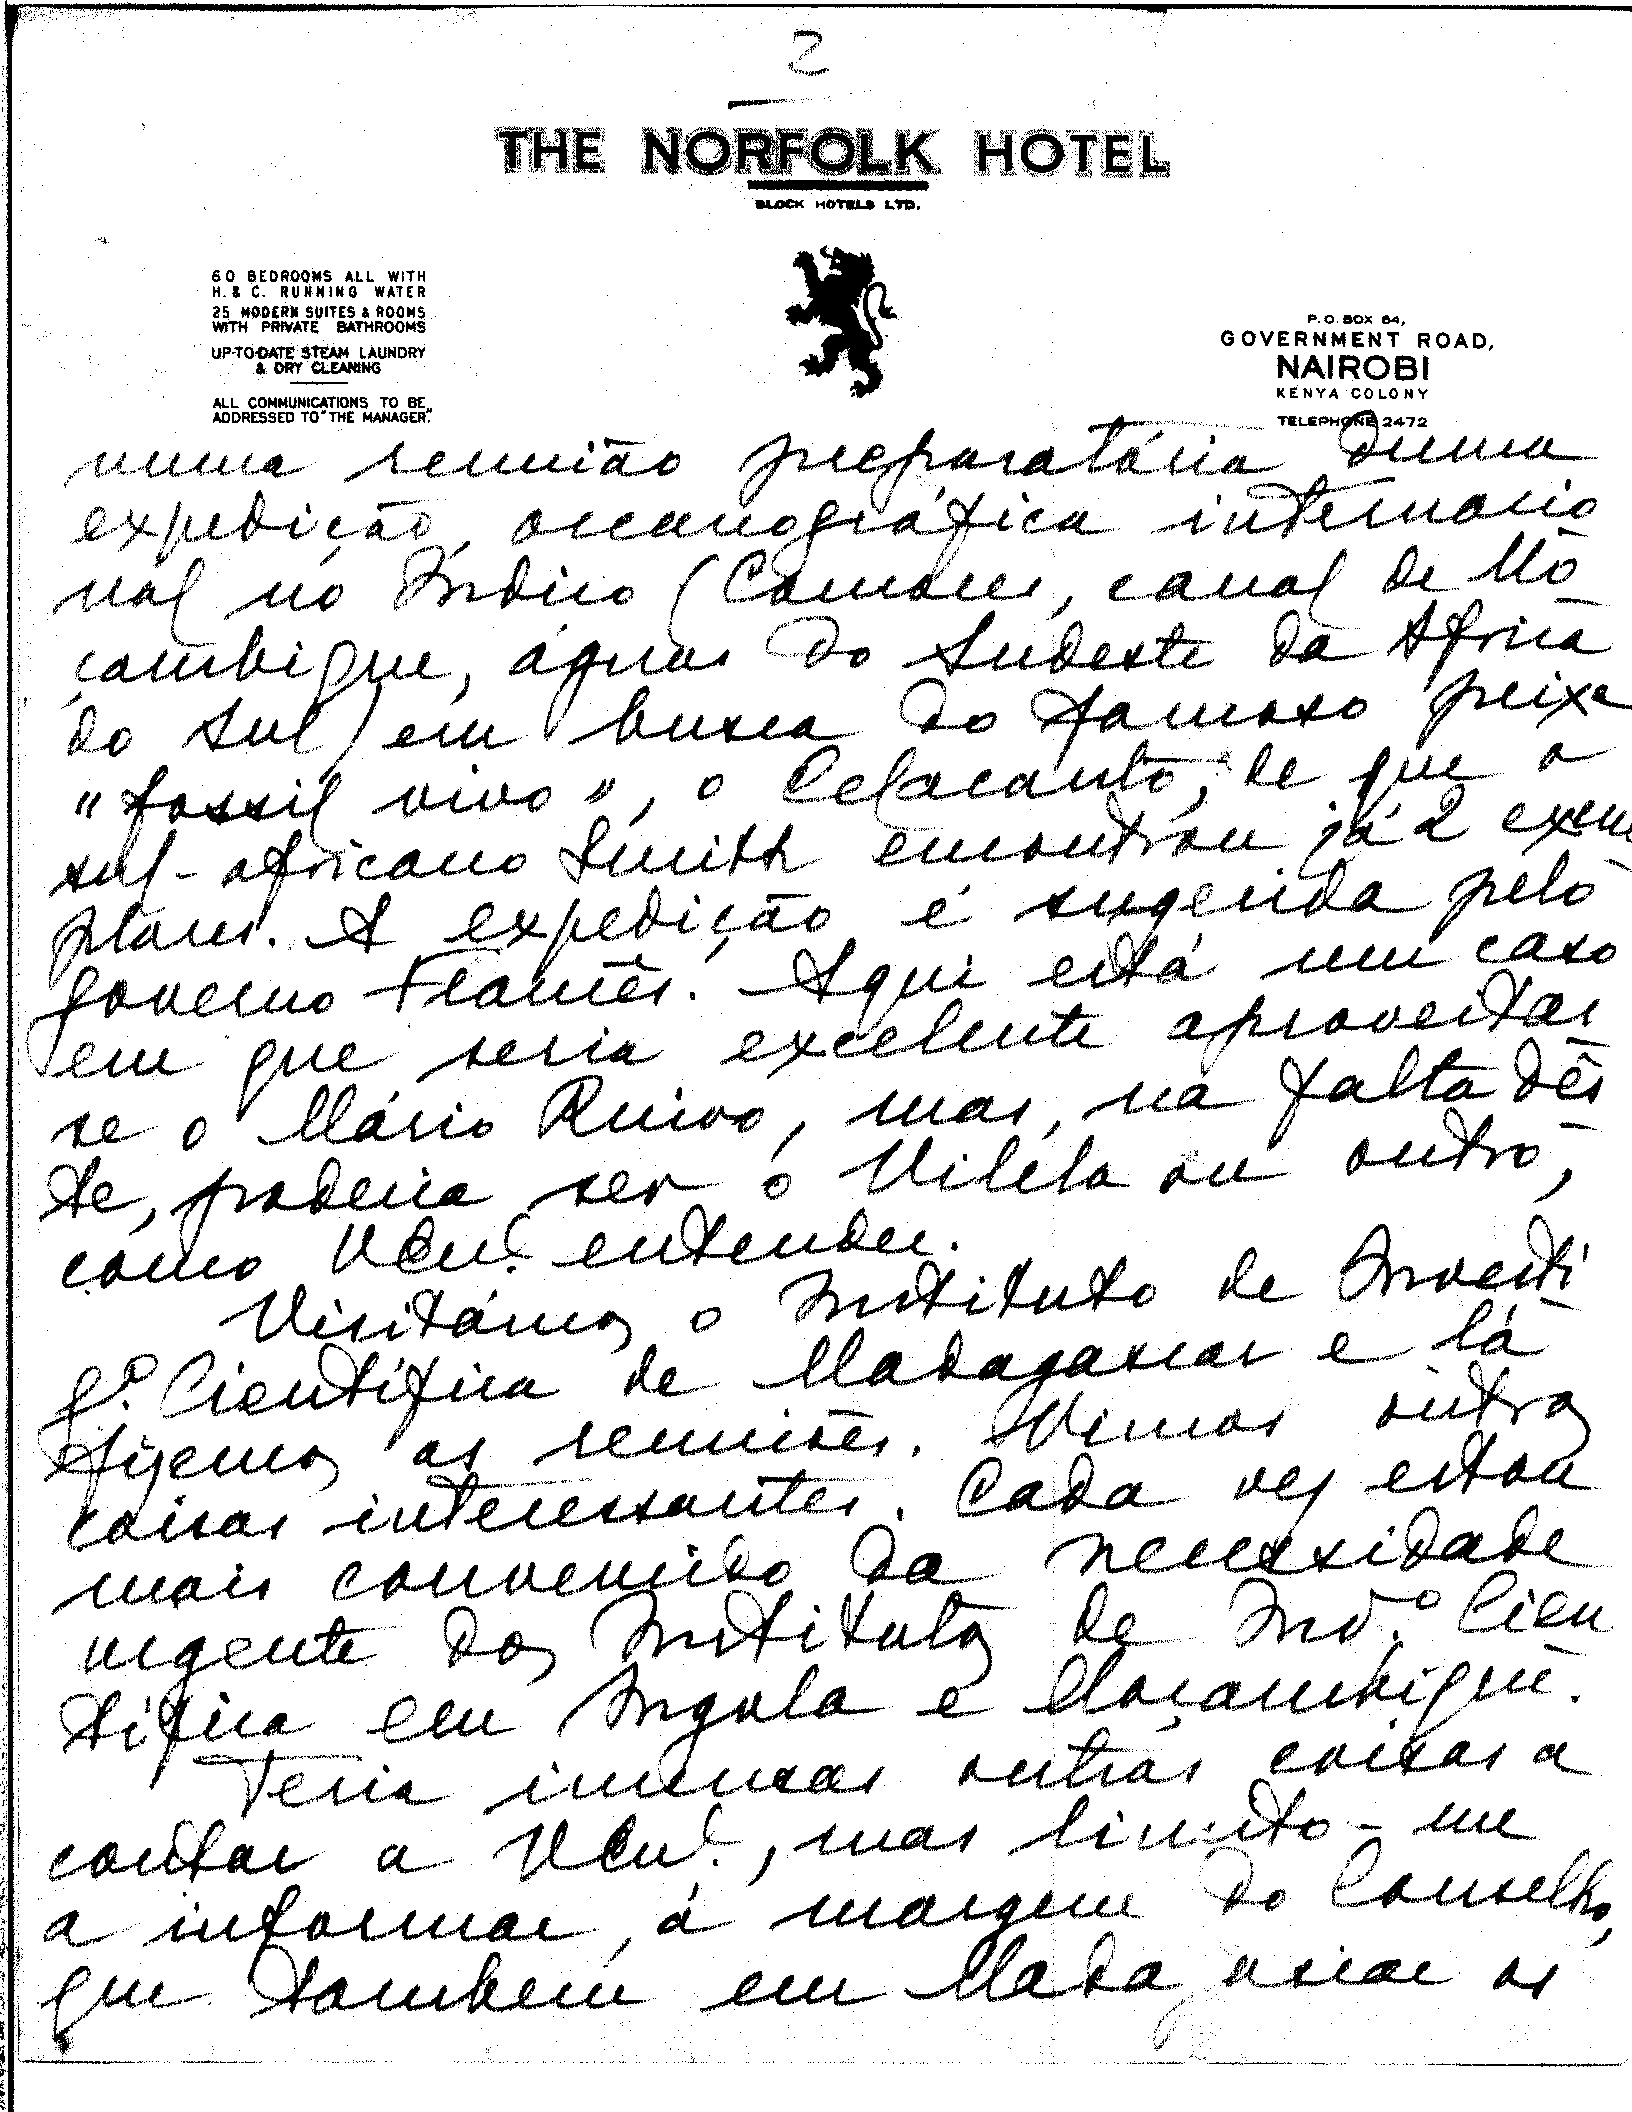 2
THE NORFOLK HOTEL
BLOCK HOTELS LTD.
60 BEDROOMS ALL WITH
H. & C. RUNNING WATER
25 MODERN SUITES & ROOMS
WITH PRIVATE BATHROOMS
UP-TO-DATE STEAM LAUNDRY
& DRY CLEANING
ALL COMMUNICATIONS TO BE
ADDRESSED TO "THE MANAGER".
P.O. BOX 64,
GOVERNMENT ROAD,
NAIROBI
KENYA COLONY
TELEPHONE 2472
numa reunião preparatória duma
expedição oceanográfica internacio
nal no Índico (Comores, canal de Mo
çambique, águas do Sudeste da Africa
do Sul) em busca do famoso peixe
"fossil vivo", o Celacanto, de que o
sul-africano Smith encontrou já 2 exem
plares. A expedição é sugerida pelo
governo Francês. Aqui está um caso
em que seria excelente aproveitar
se o Mário Ruivo, mas, na falta dês
te, poderia ser o Vilela ou outro,
como V. entender.
Visitámos o Instituto de Investi
g.º Cientifica de Madagascar e lá
fizemos as reuniões. Vimos outras
coisas interessantes. Cada vez estou
mais convencido da necessidade
urgente dos Institutos de Inv.º Cien
tífica em Angola e Moçambique.
Teria imensas outras coisas a
contar a V., mas limito-me
a informar, à margem do Conselho,
que também em Madagascar os